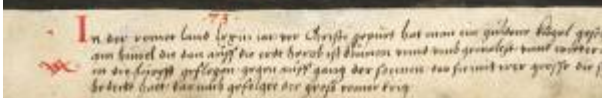 73
In der romer land lxxiii iar vor Christi gepurt hat man ein guldene kugel gese
am himel die dan auff die erde herab ist kumen vnnd vmb gewalczt vnnd wider
in die höhe geflogen gegen auff gang der sonnen
bedeckt hatt dar nach gefolget der groß romer krieg